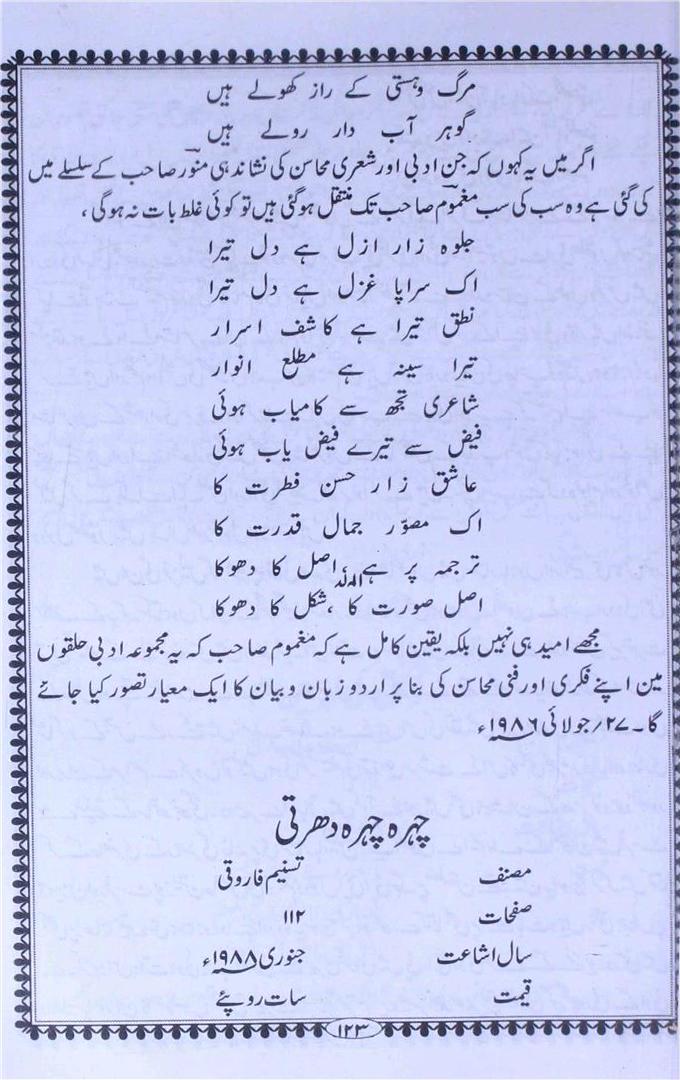 مرگ وہستی کے راز کھولے ہیں
گوہر آب دار رولے ہیں
اگر میں یہ کہوں کہ جن ادبی اور شعری محاسن کی نشاندہی منورؔ صاحب کے سلسلے میں
کی گئی ہے وہ سب کی سب مغمومؔ صاحب تک منتقل ہوگئی ہیں تو کوئی غلط بات نہ ہوگی،
جلوہ زار ازل ہے دل تیرا
اک سراپا غزل ہے دل تیرا
نطق تیرا ہے کاشف اسرار
تیرا سینہ ہے مطلع انوار
شاعری تجھ سے کامیاب ہوئی
فیض سے تیرے فیض یاب ہوئی
عاشق زار حسن فطرت کا
اک مصوّر جمال قدرت کا
ترجمہ پر ہے، اصل کا دھوکا
اصل صورت کا، شکل کا دھوکا
مجھے امید ہی نہیں بلکہ یقین کامل ہے کہ مغموم صاحب کہ یہ مجموعہ ادبی حلقوں
مین اپنے فکری اور فنی محاسن کی بنا پر اردو زبان و بیان کا ایک معیار تصور کیا جائے
گا۔ ۲۷/جولائی ۱۹۸۶ء
چہرہ چہرہ دھرتی
مصنف تسنیم فاروقی
صفحات ۱۱۲
سال اشاعت جنوری ۱۹۸۸ء
قیمت سات روپئے
۱۲۳